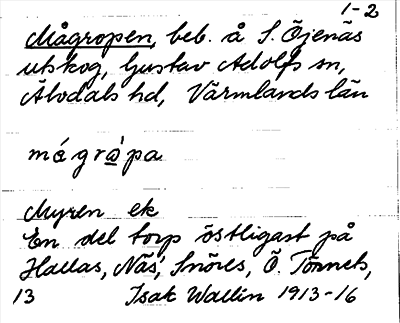 1-2
Mågropen, beb. å S. Öjenäs
utskog, Gustav Adolfs sn,
Älvdals hd, Värmlands län
mágrò̱pa
Myren ek
En del torp östligast på
Hallas, Näs, Snöres, Ö. Tönnets,
13 Isak Wallin 1913-16